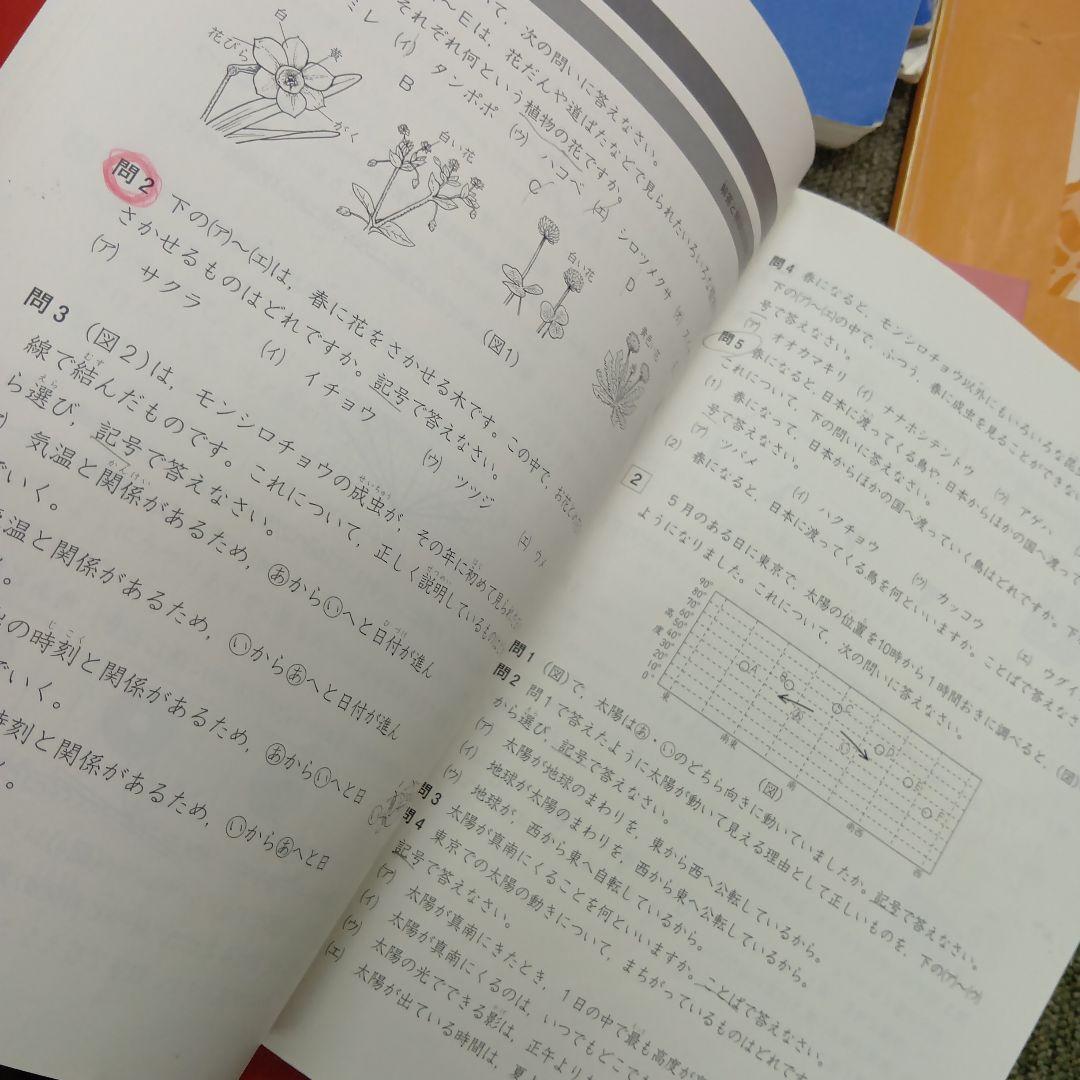 いて、次の問いに答えなさい。
～Eは、花だんや道ばたなどで見られたいろいろな
それぞれ何という植物の花ですか。
ミレ (イ) タンポポ (ウ) ハコベ (エ) シロツメクサ (オ)
白
花びら
黄
がく
B
白い花
C
白い花
D
黄色い花
(図1)
問2 下の(ア)～(エ)は、春に花をさかせる木です。この中で、お花
さかせるものはどれですか。記号で答えなさい。
(ア) サクラ (イ) イチョウ (ウ) ツツジ (エ) ウメ
問3 (図2)は、モンシロチョウの成虫が、その年に初めて見られた
線で結んだものです。これについて、正しく説明しているものを
ら選び、記号で答えなさい。
気温と関係があるため、あからいへと日付が進ん
でいく。
気温と関係があるため、いからあへと日付が進ん
の時刻と関係があるため、あからいへと日
でいく。
時刻と関係があるため、いからあへと日
問4 春になると、モンシロチョウ以外にもいろいろな昆
下の(ア)～(エ)の中で、ふつう、春に成虫を見ることができない
号で答えなさい。
(ア) オオカマキリ (イ) ナナホシテントウ (ウ) アゲハ
問5 春になると、日本に渡ってくる鳥や、日本からほかの国へ渡って
これについて、下の問いに答えなさい。
(1) 春になって、日本からほかの国へ渡っていく鳥はどれですか。下
号で答えなさい。
(ア) ツバメ (イ) ハクチョウ (ウ) カッコウ (エ) ウグイ
(2) 春になると、日本に渡ってくる鳥を何といいますか。ことばで答えなさ
2 5月のある日に東京で、太陽の位置を10時から1時間おきに調べると、(図)
ようになりました。これについて、次の問いに答えなさい。
90°
80°
70°
60°
50°
40°
30°
20°
10°
0°
高度
東
南東
南
南西
西
A
B
あ
C
い
D
E
F
(図)
問1 (図)で、太陽はあ・いのどちら向きに動いていましたか。記号で答えなさい。
問2 問1で答えたように太陽が動いて見える理由として正しいものを、下の(ア)～(ウ)
から選び、記号で答えなさい。
(ア) 太陽が地球のまわりを、東から西へ公転しているから。
(イ) 地球が太陽のまわりを、西から東へ公転しているから。
(ウ) 地球が、西から東へ自転しているから。
問3 太陽が真南にくることを何といいますか。ことばで答えなさい。
問4 東京での太陽の動きについて、まちがっているものはどれです
記号で答えなさい。
(ア) 太陽が真南にきたとき、1日の中で最も高度が
(イ) 太陽が真南にくるのは、いつでもどこでも
(ウ) 太陽の光でできる影は、正午より
(エ) 太陽が出ている時間は、夏